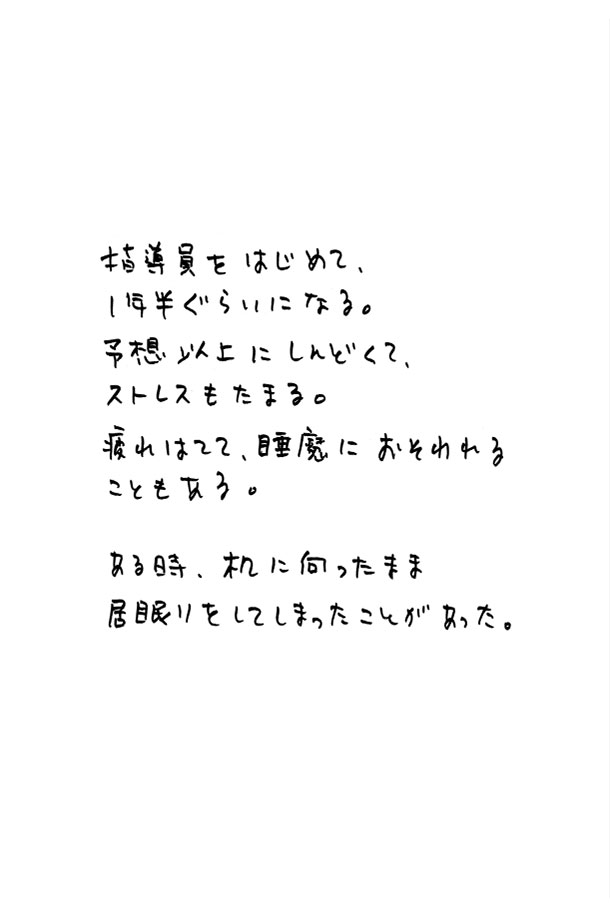 指導員をはじめて、
1年半ぐらいになる。
予想以上にしんどくて、
ストレスもたまる。
疲れはてて、睡魔におそわれる
こともある。
ある時、机に向ったまま
居眠りをしてしまったことがあった。